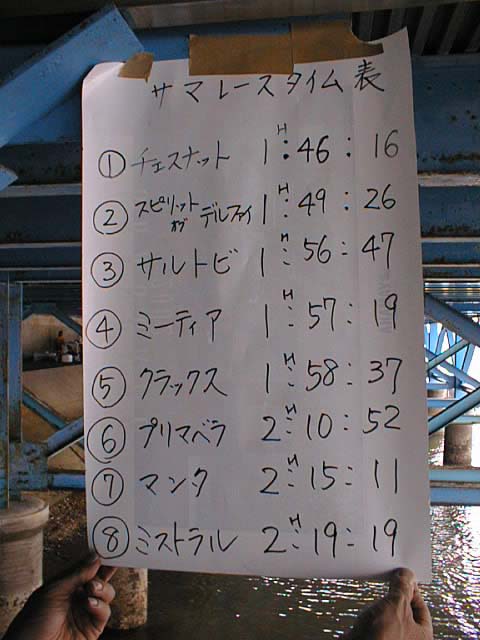 サマレースタイム表
① チェスナット 1H:46:16
② スピリットオブデルフィ 1H:49:26
③ サルトビ 1H:56:47
④ ミーティア 1H:57:19
⑤ クラックス 1H:58:37
⑥ プリマベラ 2H:10:52
⑦ マンタ 2H:15:11
⑧ ミストラル 2H:19:19